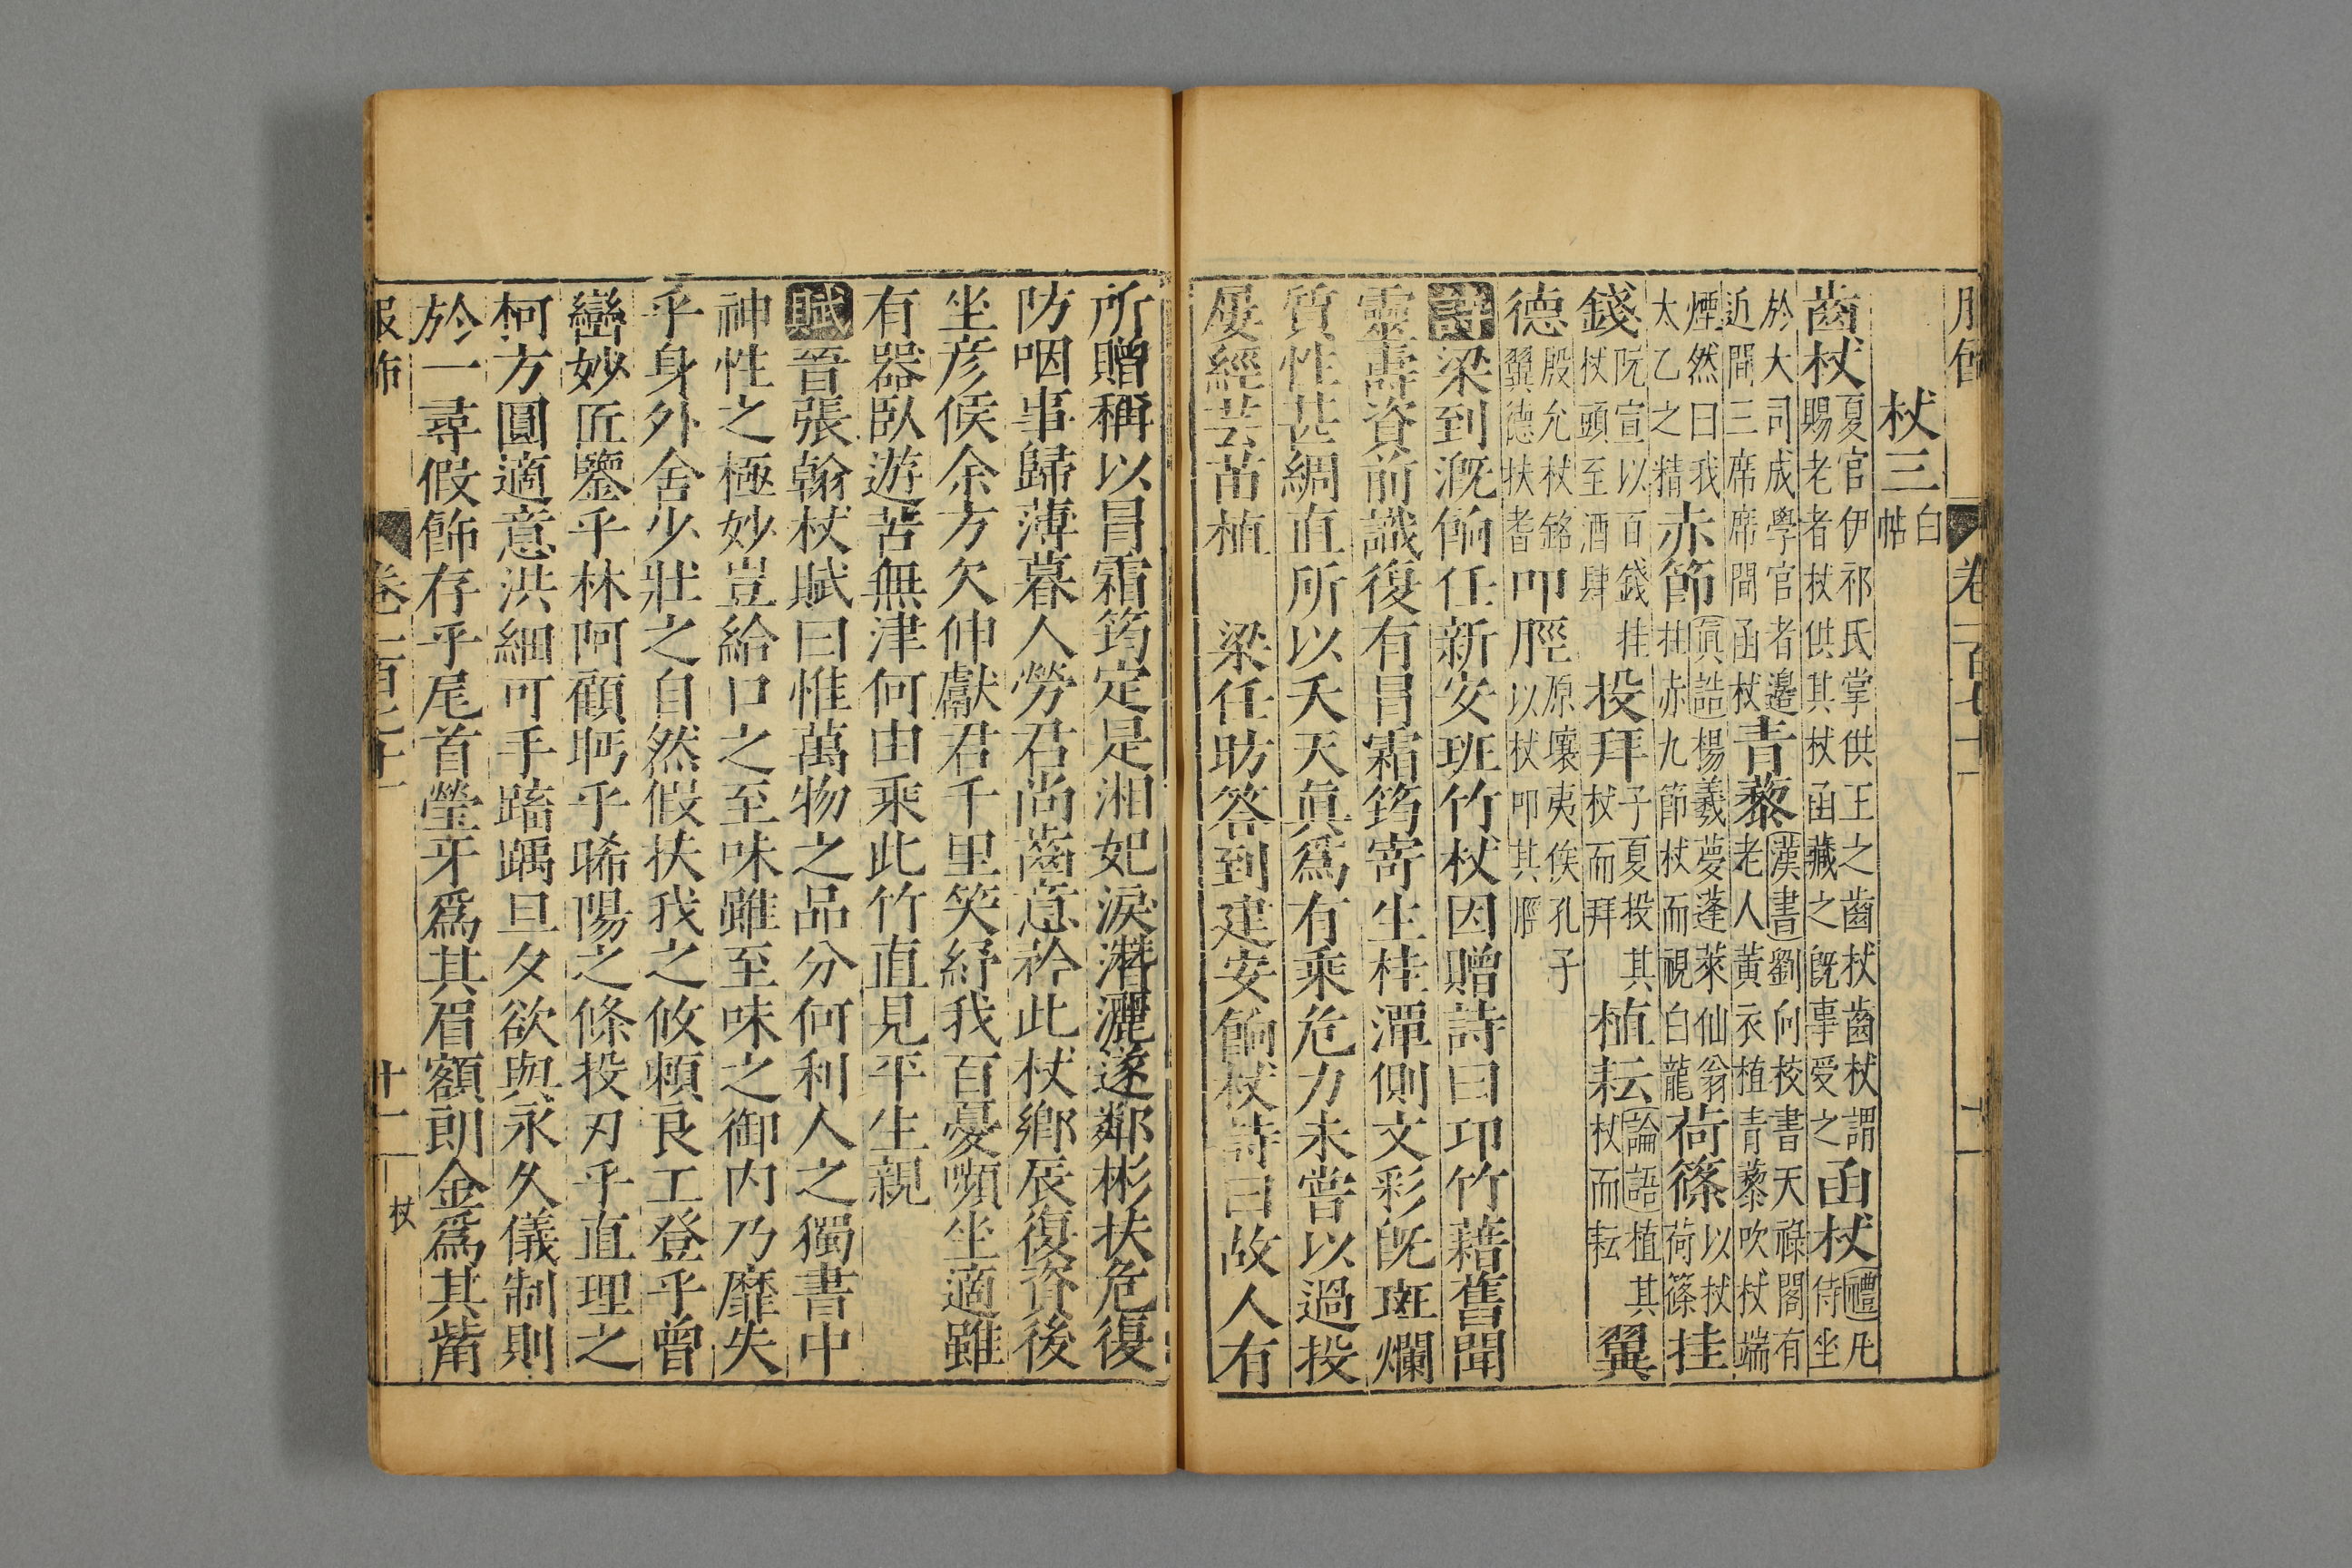 杖三白帖
齒杖夏官伊祁氏掌供王之齒杖齒杖謂賜老者杖供其杖函藏之旣事受之函杖禮凡侍坐
於大司成學官者邊近間三席席間函杖青藜漢書劉向校書天祿閣有老人黃衣植青藜吹杖端
煙然曰我太乙之精赤節眞誥楊羲夢蓬萊仙翁拄赤九節杖而視白龍荷篠以杖荷篠挂
錢阮宣以百錢挂杖頭至酒肆投拜子夏投其杖而拜植耘論語植其杖而耘翼
德殷允杖銘翼德扶耆叩脛原壤夷俟孔子以杖叩其脛
詩梁到溉餉任新安班竹杖因贈詩曰卭竹藉舊聞
靈壽資前識復有冒霜筠寄生桂潭側文彩旣斑爛
質性甚綢直所以夭天眞爲有乘危力未嘗以過投
屡經芸苗植 梁任昉答到建安餉杖詩曰故人有
所贈稱以冒霜筠定是湘妃淚潛灑遂鄰彬扶危復
防咽事歸薄暮人勞君尚齒意矜此杖鄉辰復資後
坐彦候余方欠伸獻君千里笑紓我百憂嚬坐適雖
有器臥遊苦無津何由乘此竹直見平生親
賦晉張翰杖賦曰惟萬物之品分何利人之獨書中
神性之極妙豈給口之至味雖至味之御内乃靡失
乎身外舍少壯之自然假扶我之攸賴良工登乎曾
巒妙匠鑒乎林阿顧眄乎晞陽之條投刃乎直理之
柯方圓適意洪細可手踦䠱旦夕欲與永久儀制則
於一尋假飾存乎尾首瑩牙爲其眉額朗金爲其觜
服飾 卷一百七十一 十一 杖